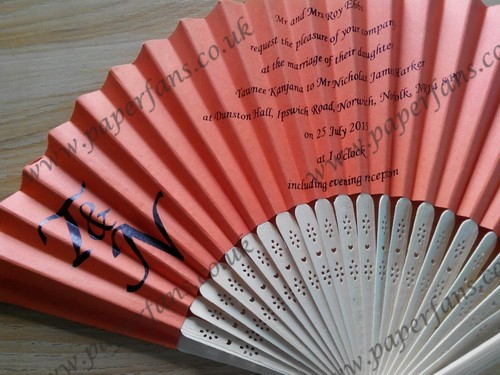 Mr and Mrs Roy Ebbs
request the pleasure of your company
at the marriage of their daughter
Tawnee Kanjana to Mr Nicholas James Harker
at Dunston Hall, Ipswich Road, Norwich, Norfolk,
on 25 July 2013
at 1 o'clock
including evening reception
T&N
www.paperfans.co.uk
www.paperfans.co.uk
www.paperfans.co.uk